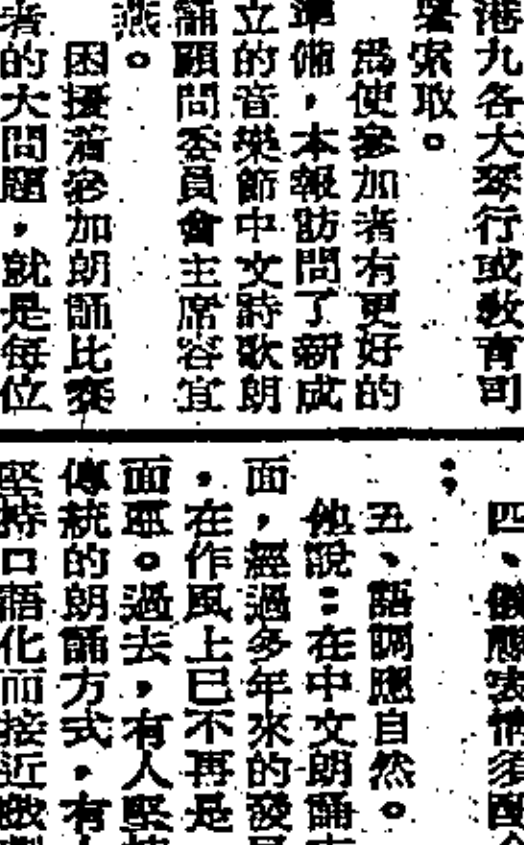 港九各大琴行或教育司
署索取。
爲使參加者有更好的
準備,本報訪問了新成
立的音樂節中文詩歌朗
誦顧問委員會主席容宜
燕。
困擾着參加朗誦比賽
者的大問題,就是每位
四、儀態表情須配合
五、語調應自然。
他說:在中文朗誦
面,經過多年來的發展
,在作風上已不再是
面。過去,有人堅持
傳統的朗誦方式,有
堅持口語化而接近